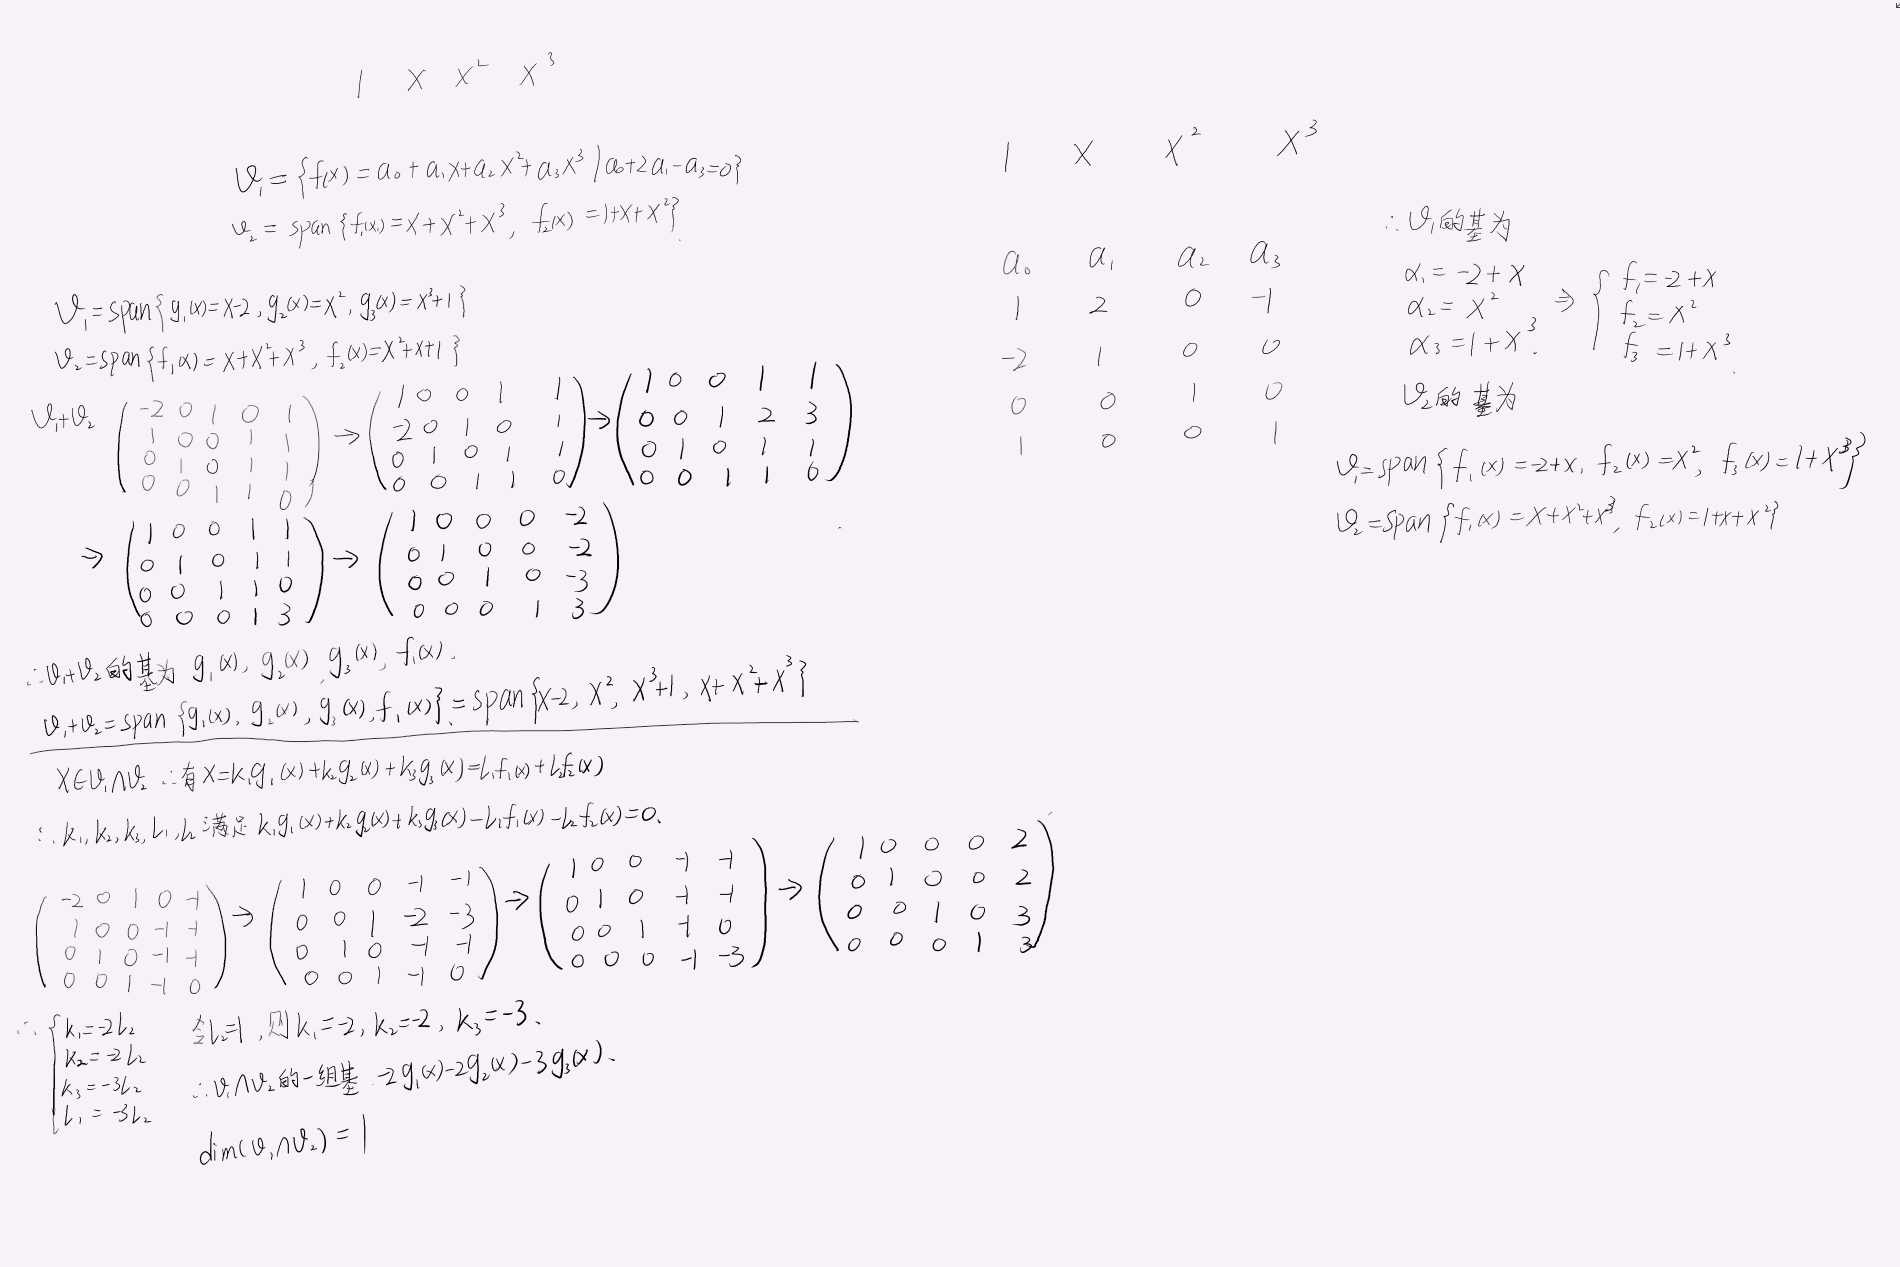 1 x x² x³
V₁ = {f(x) = a₀ + a₁x + a₂x² + a₃x³ | a₀+2a₁-a₃=0}
V₂ = span{f₁(x) = x+x²+x³, f₂(x) = 1+x+x²}.
V₁ = span{g₁(x)=x-2, g₂(x)=x², g₃(x)=x³+1}
V₂ = span{f₁(x) = x+x²+x³, f₂(x)=x²+x+1}
V₁+V₂ (-2 0 1 0 1 → (1 0 0 1 1 → (1 0 0 1 1
1 0 0 1 1 -2 0 1 0 1 0 0 1 2 3
0 1 0 1 1 0 1 0 1 1 0 1 0 1 1
0 0 1 1 0) 0 0 1 1 0) 0 0 1 1 0)
→ (1 0 0 1 1 → (1 0 0 0 -2
0 1 0 1 1 0 1 0 0 -2
0 0 1 1 0 0 0 1 0 -3
0 0 0 1 3) 0 0 0 1 3)
∴ V₁+V₂的基为 g₁(x), g₂(x), g₃(x), f₁(x).
V₁+V₂ = span{g₁(x), g₂(x), g₃(x), f₁(x)} = span{x-2, x², x³+1, x+x²+x³}
X∈V₁∩V₂ ∴有 X=k₁g₁(x)+k₂g₂(x)+k₃g₃(x)=L₁f₁(x)+L₂f₂(x)
∴ k₁, k₂, k₃, L₁, L₂ 满足 k₁g₁(x)+k₂g₂(x)+k₃g₃(x)-L₁f₁(x)-L₂f₂(x)=0.
(-2 0 1 0 -1 → (1 0 0 -1 -1 → (1 0 0 -1 -1 → (1 0 0 0 2
1 0 0 -1 -1 0 0 1 -2 -3 0 1 0 -1 -1 0 1 0 0 2
0 1 0 -1 -1 0 1 0 -1 -1 0 0 1 -1 0 0 0 1 0 3
0 0 1 -1 0) 0 0 1 -1 0) 0 0 0 -1 -3) 0 0 0 1 3)
∴ { k₁=-2L₂ 令L₂=1, 则k₁=-2, k₂=-2, k₃=-3、
k₂=-2L₂
k₃=-3L₂ ∴V₁∩V₂的一组基 -2g₁(x)-2g₂(x)-3g₃(x)、
L₁=-3L₂
dim(V₁∩V₂) = 1
1 x x² x³
a₀ a₁ a₂ a₃
1 2 0 -1
-2 1 0 0
0 0 1 0
1 0 0 1
∴ V₁的基为
α₁ = -2+x ⇒ { f₁=-2+x
α₂ = x² f₂=x²
α₃=1+x³. f₃=1+x³.
V₂的基为
V₁=span{f₁(x)=-2+x, f₂(x)=x², f₃(x)=1+x³}
V₂=span{f₁(x)=x+x²+x³, f₂(x)=1+x+x²}